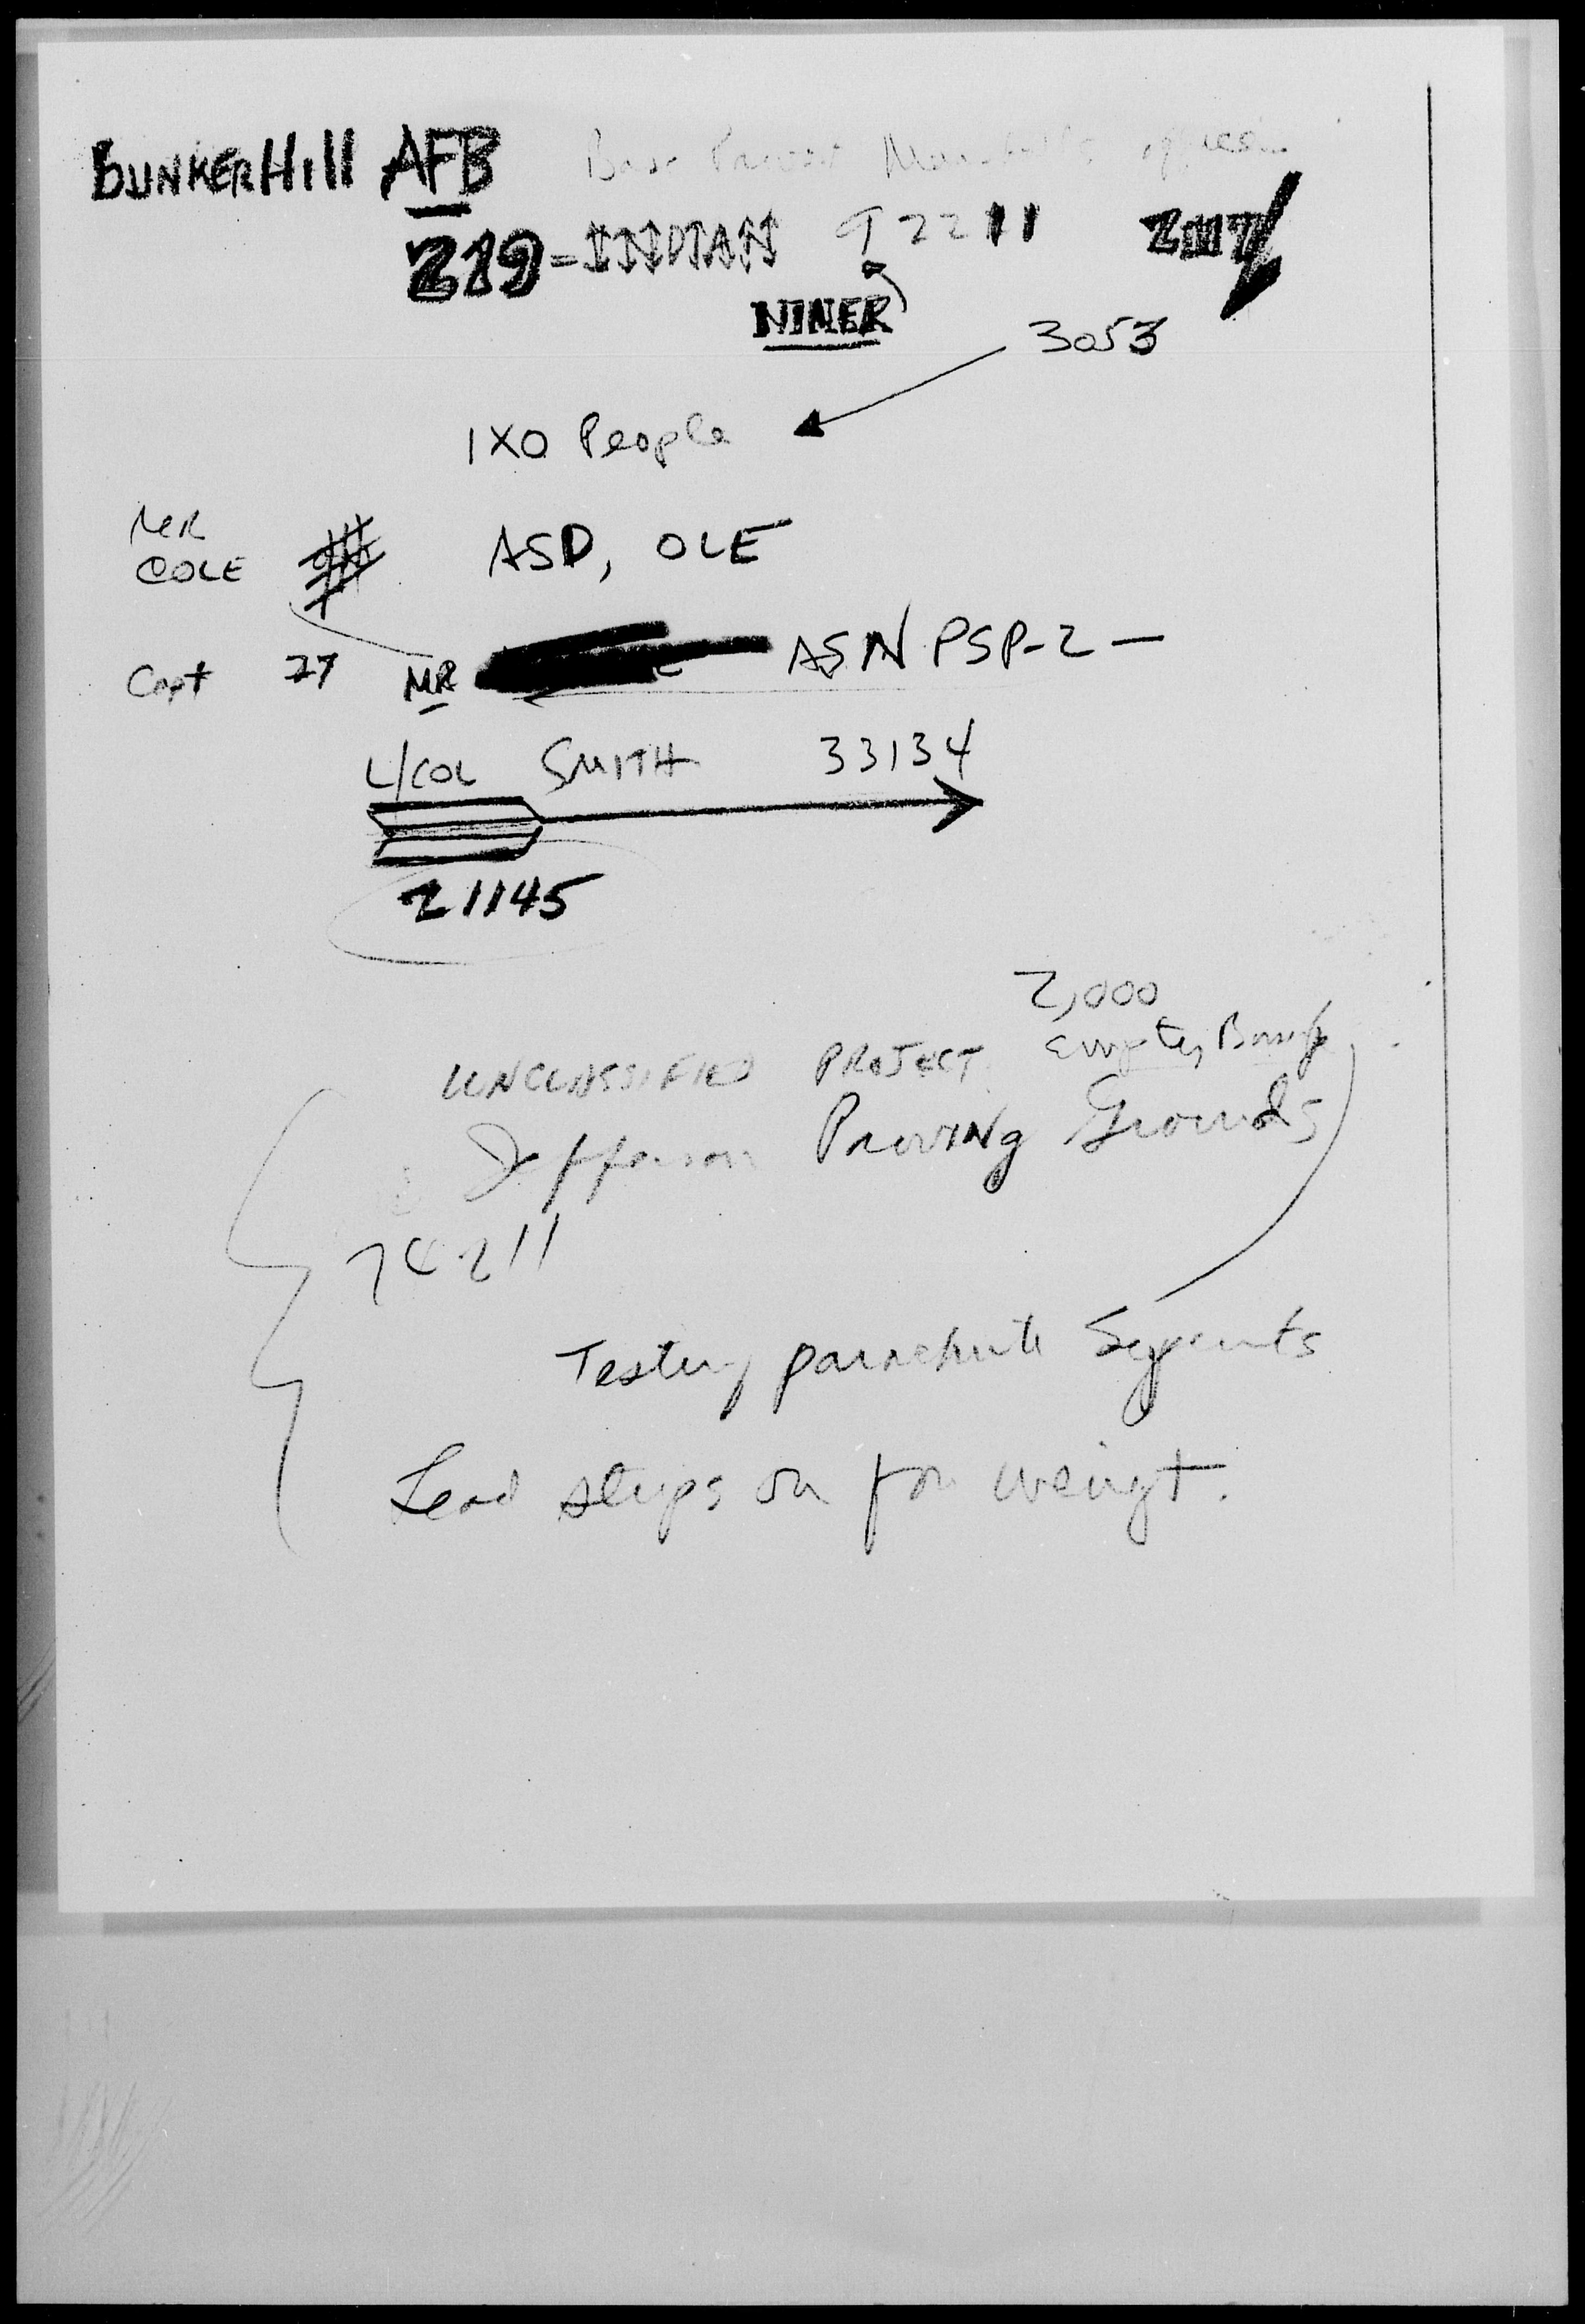 BUNKERHill AFB Base Provost Marshall's office
219-INDIAN 92211
NINER
3053
1XO People
MR
COLE
ASD, OLE
Capt 27 MR ASNPSP-2-
L/COL SMITH 33134
21145
2,000
UNCLASSIFIED PROJECT Empty Bomb
Jefferson Proving Grounds
Testing parachute Segments
Lead strips on for weingt.